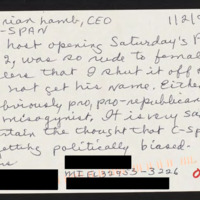 rian Lamb, CEO 1/2/9
-SPAN
host opening Saturday's P
2, was so rude to femal
lers that I shut it off
not get his name. Either
bviously pro, pro-republican
misogynist. It is very sa
tain the thought that C-Sp
getting politically biased-
MI FL 32953-3226